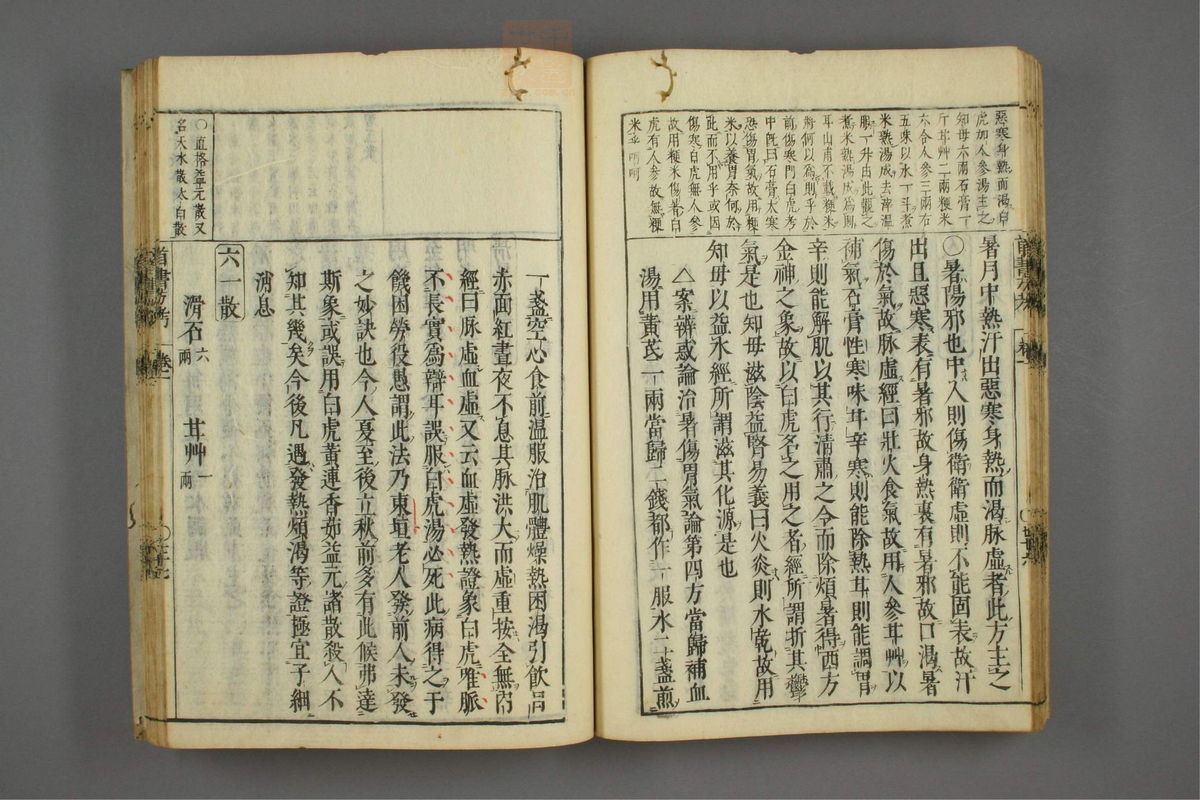 惡寒身熱而渴白
虎加人參湯主之
知母六兩石膏一
斤甘艸二兩粳米
六合人參三兩右
五味以水一斗煮
米熟湯成去滓温
服一升由此觀之
煮米熟湯成為則
耳山甫不載粳米
將何以為則乎於
前傷寒門白虎考
中既曰石膏大寒
恐傷胃氣故用粳
米以養胃奈何於
此而不用乎或因
傷寒白虎無人參
故用粳米傷暑白
虎有人參故無粳
米乎呵呵
暑月中熱汗出惡寒身熱而渴脉虛者此方主之
暑陽邪也中人則傷衛衛虛則不能固表故汗
出且惡寒表有暑邪故身熱裏有暑邪故口渴暑
傷於氣故脉虛經曰壯火食氣故用人參甘艸以
補氣石膏性寒味甘辛寒則能除熱甘則能調胃
辛則能解肌以其行清肅之令而除煩暑得西方
金神之象故以白虎名之用之者經所謂折其鬱
氣是也知母滋陰益腎易義曰火炎則水乾故用
知母以益水經所謂滋其化源是也
△案辨惑論治暑傷胃氣論第四方當歸補血
湯用黃芪一兩當歸二錢都作一服水二盞煎
首書方考 卷一
一盞空心食前温服治肌體燥熱困渴引飲目
赤面紅晝夜不息其脉洪大而虛重按全無內
經曰脉虛血虛又云血虛發熱證象白虎唯脉
不長實為辯耳誤服白虎湯必死此病得之于
饑困勞役愚謂此法乃東垣老人發前人未發
之妙訣也今人夏至後立秋前多有此候弗達
斯象或誤用白虎黃連香茹益元諸散殺人不
知其幾矣今後凡遇發熱煩渴等證極宜子細
消息
○直格益元散又
名天水散太白散
六一散
滑石六兩 甘艸一兩
首書方考 卷一